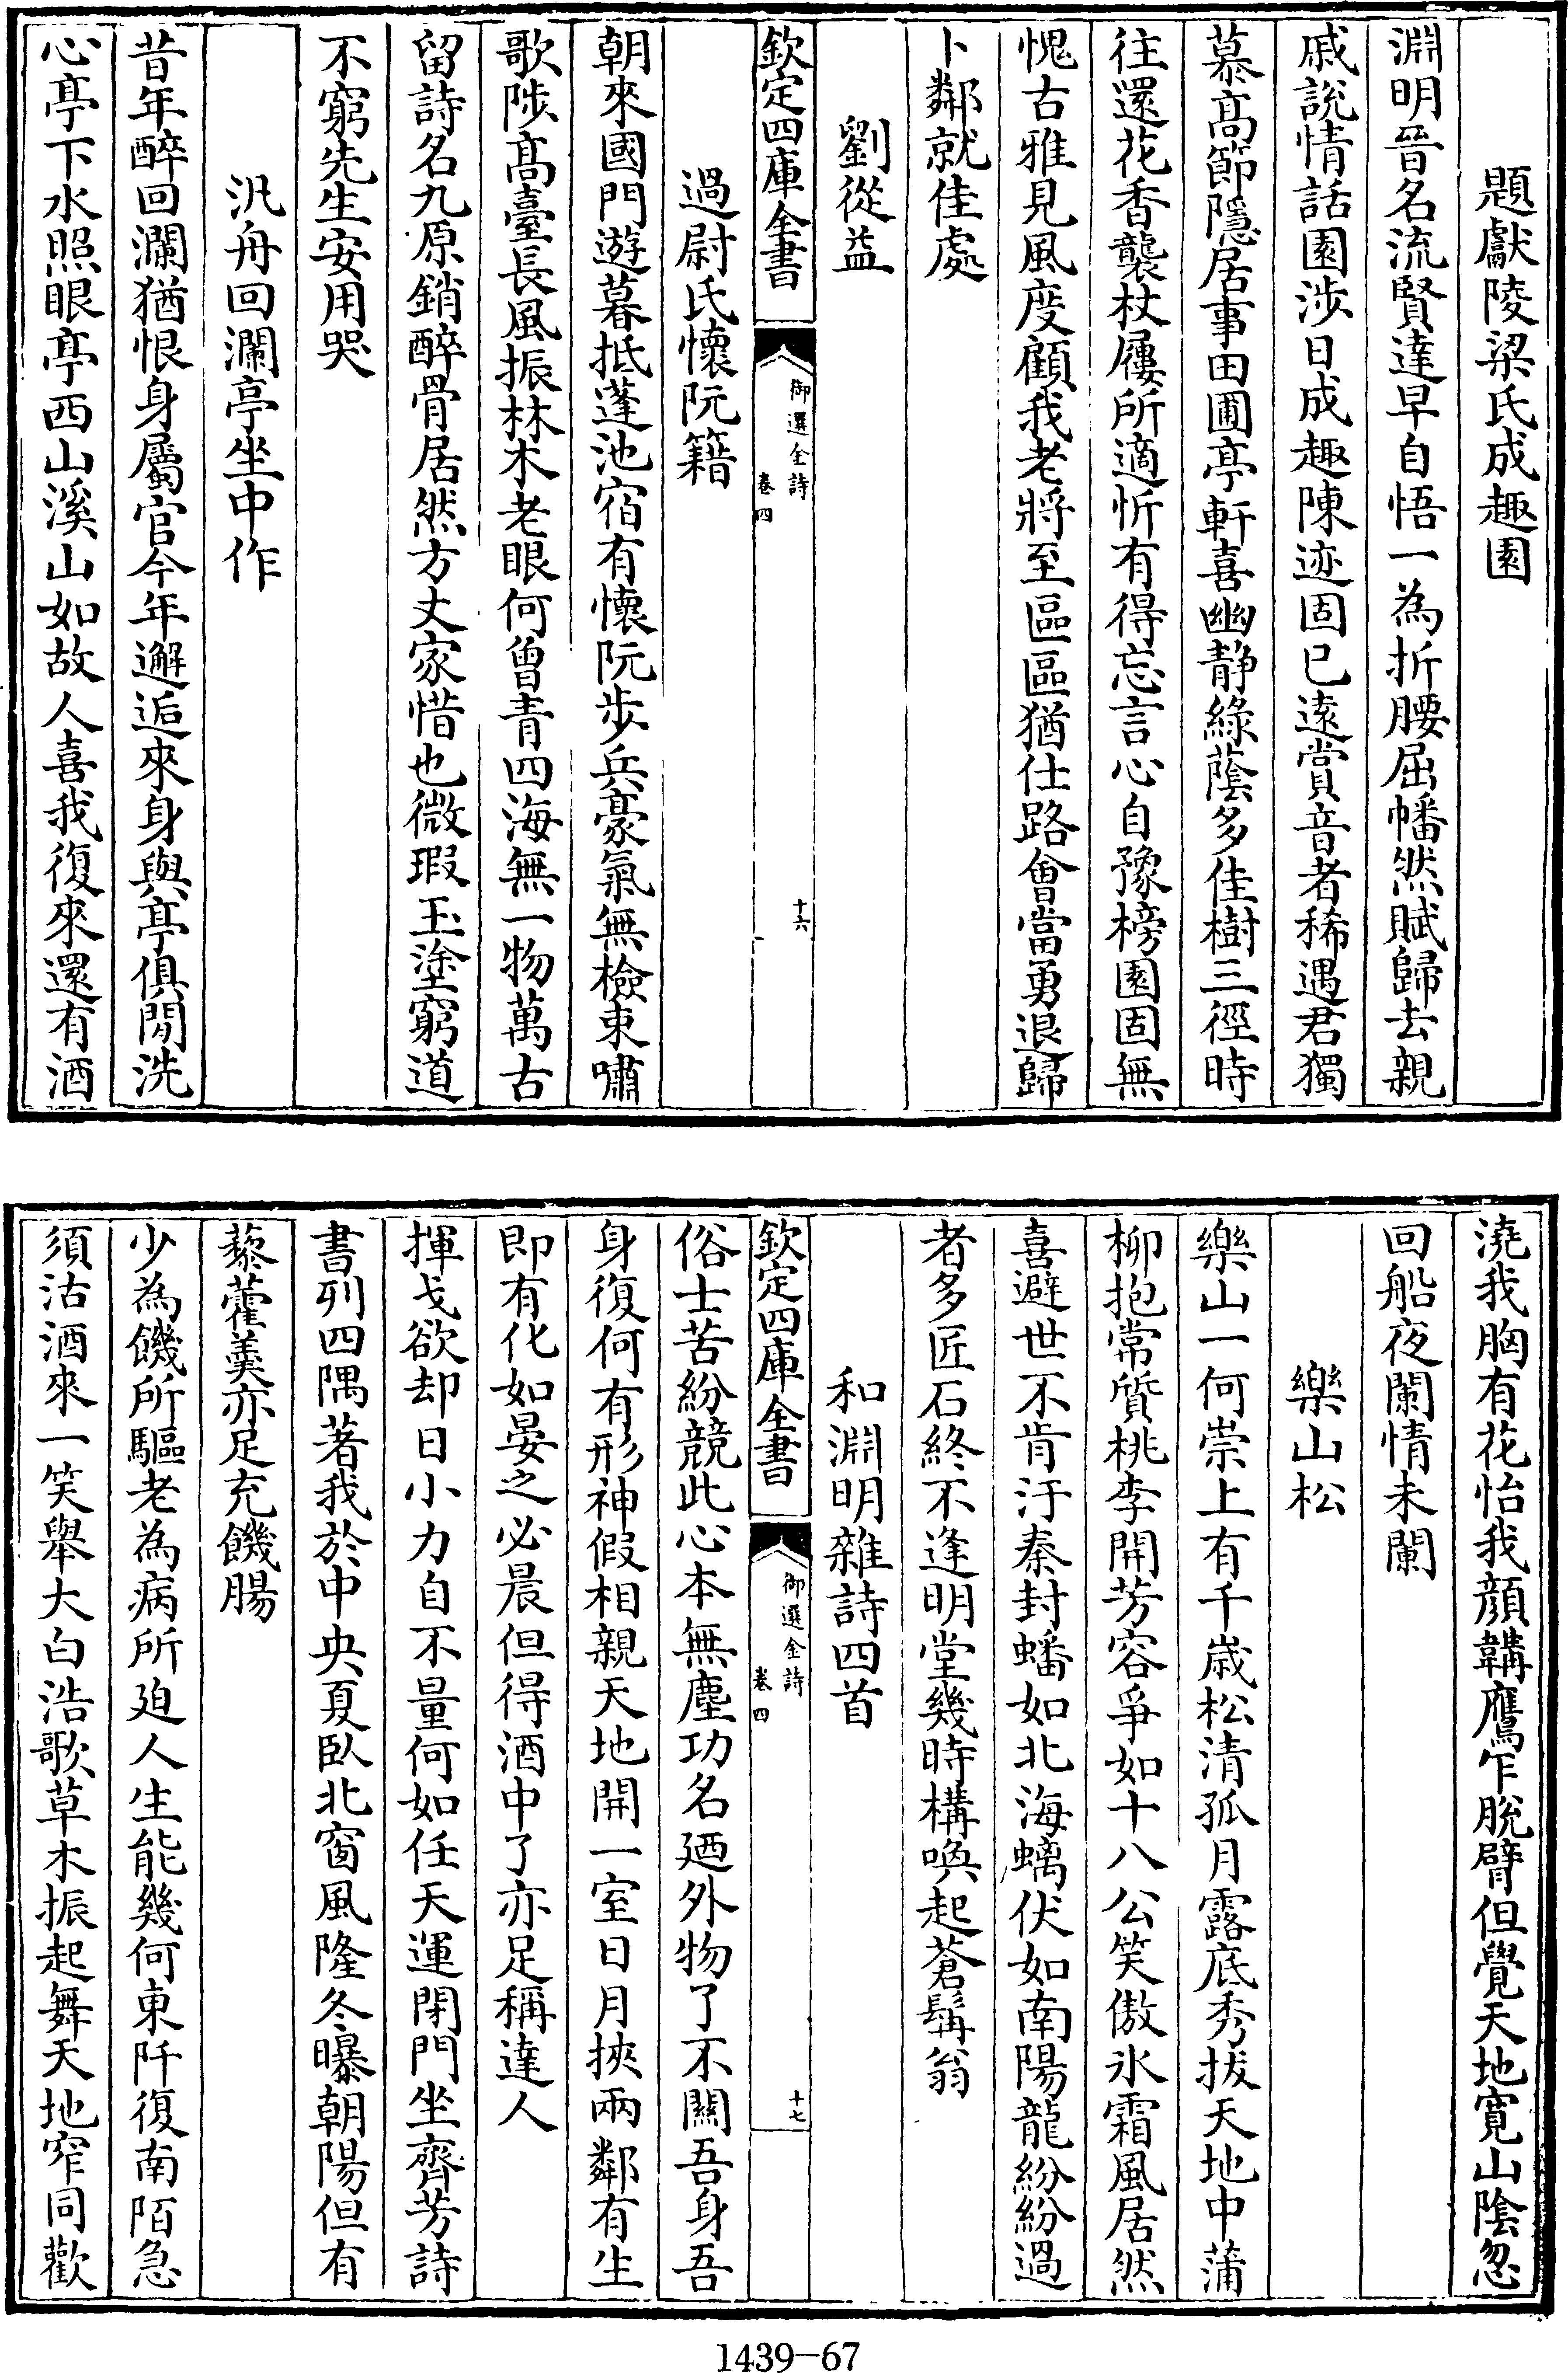 題獻陵梁氏成趣園
淵明晉名流賢達早自悟一為折腰屈幡然賦歸去親
戚說情話園涉日成趣陳迹固已遠賞音者稀遇君獨
慕髙節隱居事田圃亭軒喜幽靜綠蔭多佳樹三徑時
往還花香襲杖屨所適忻有得忘言心自豫榜園固無
愧古雅見風度顧我老將至區區猶仕路會當勇退歸
卜鄰就佳處
劉從益
欽定四庫全書
御選金詩
卷四
十六
過尉氏懷阮籍
朝來國門遊暮抵蓬池宿有懷阮步兵豪氣無檢束嘯
歌陟髙臺長風振林木老眼何曾青四海無一物萬古
留詩名九原銷醉骨居然方丈家惜也微瑕玉塗窮道
不窮先生安用哭
汎舟回瀾亭坐中作
昔年醉回瀾猶恨身屬官今年邂逅來身與亭俱閒洗
心亭下水照眼亭西山溪山如故人喜我復來還有酒
澆我胸有花怡我顔韝鷹乍脫臂但覺天地寛山陰忽
回船夜闌情未闌
樂山松
樂山一何崇上有千歲松清孤月露底秀拔天地中蒲
柳抱常質桃李開芳容爭如十八公笑傲氷霜風居然
喜避世不肯汙秦封蟠如北海螭伏如南陽龍紛紛過
者多匠石終不逢明堂幾時構喚起蒼髯翁
和淵明雜詩四首
欽定四庫全書
御選金詩
卷四
十七
俗士苦紛競此心本無塵功名廼外物了不關吾身吾
身復何有形神假相親天地開一室日月挾兩鄰有生
即有化如晏之必晨但得酒中了亦足稱達人
揮戈欲却日小力自不量何如任天運閉門坐齊芳詩
書列四隅著我於中央夏臥北窗風隆冬曝朝陽但有
藜藿羮亦足充饑腸
少為饑所驅老為病所廹人生能幾何東阡復南陌急
須沽酒來一笑舉大白浩歌草木振起舞天地窄同歡
1439-67